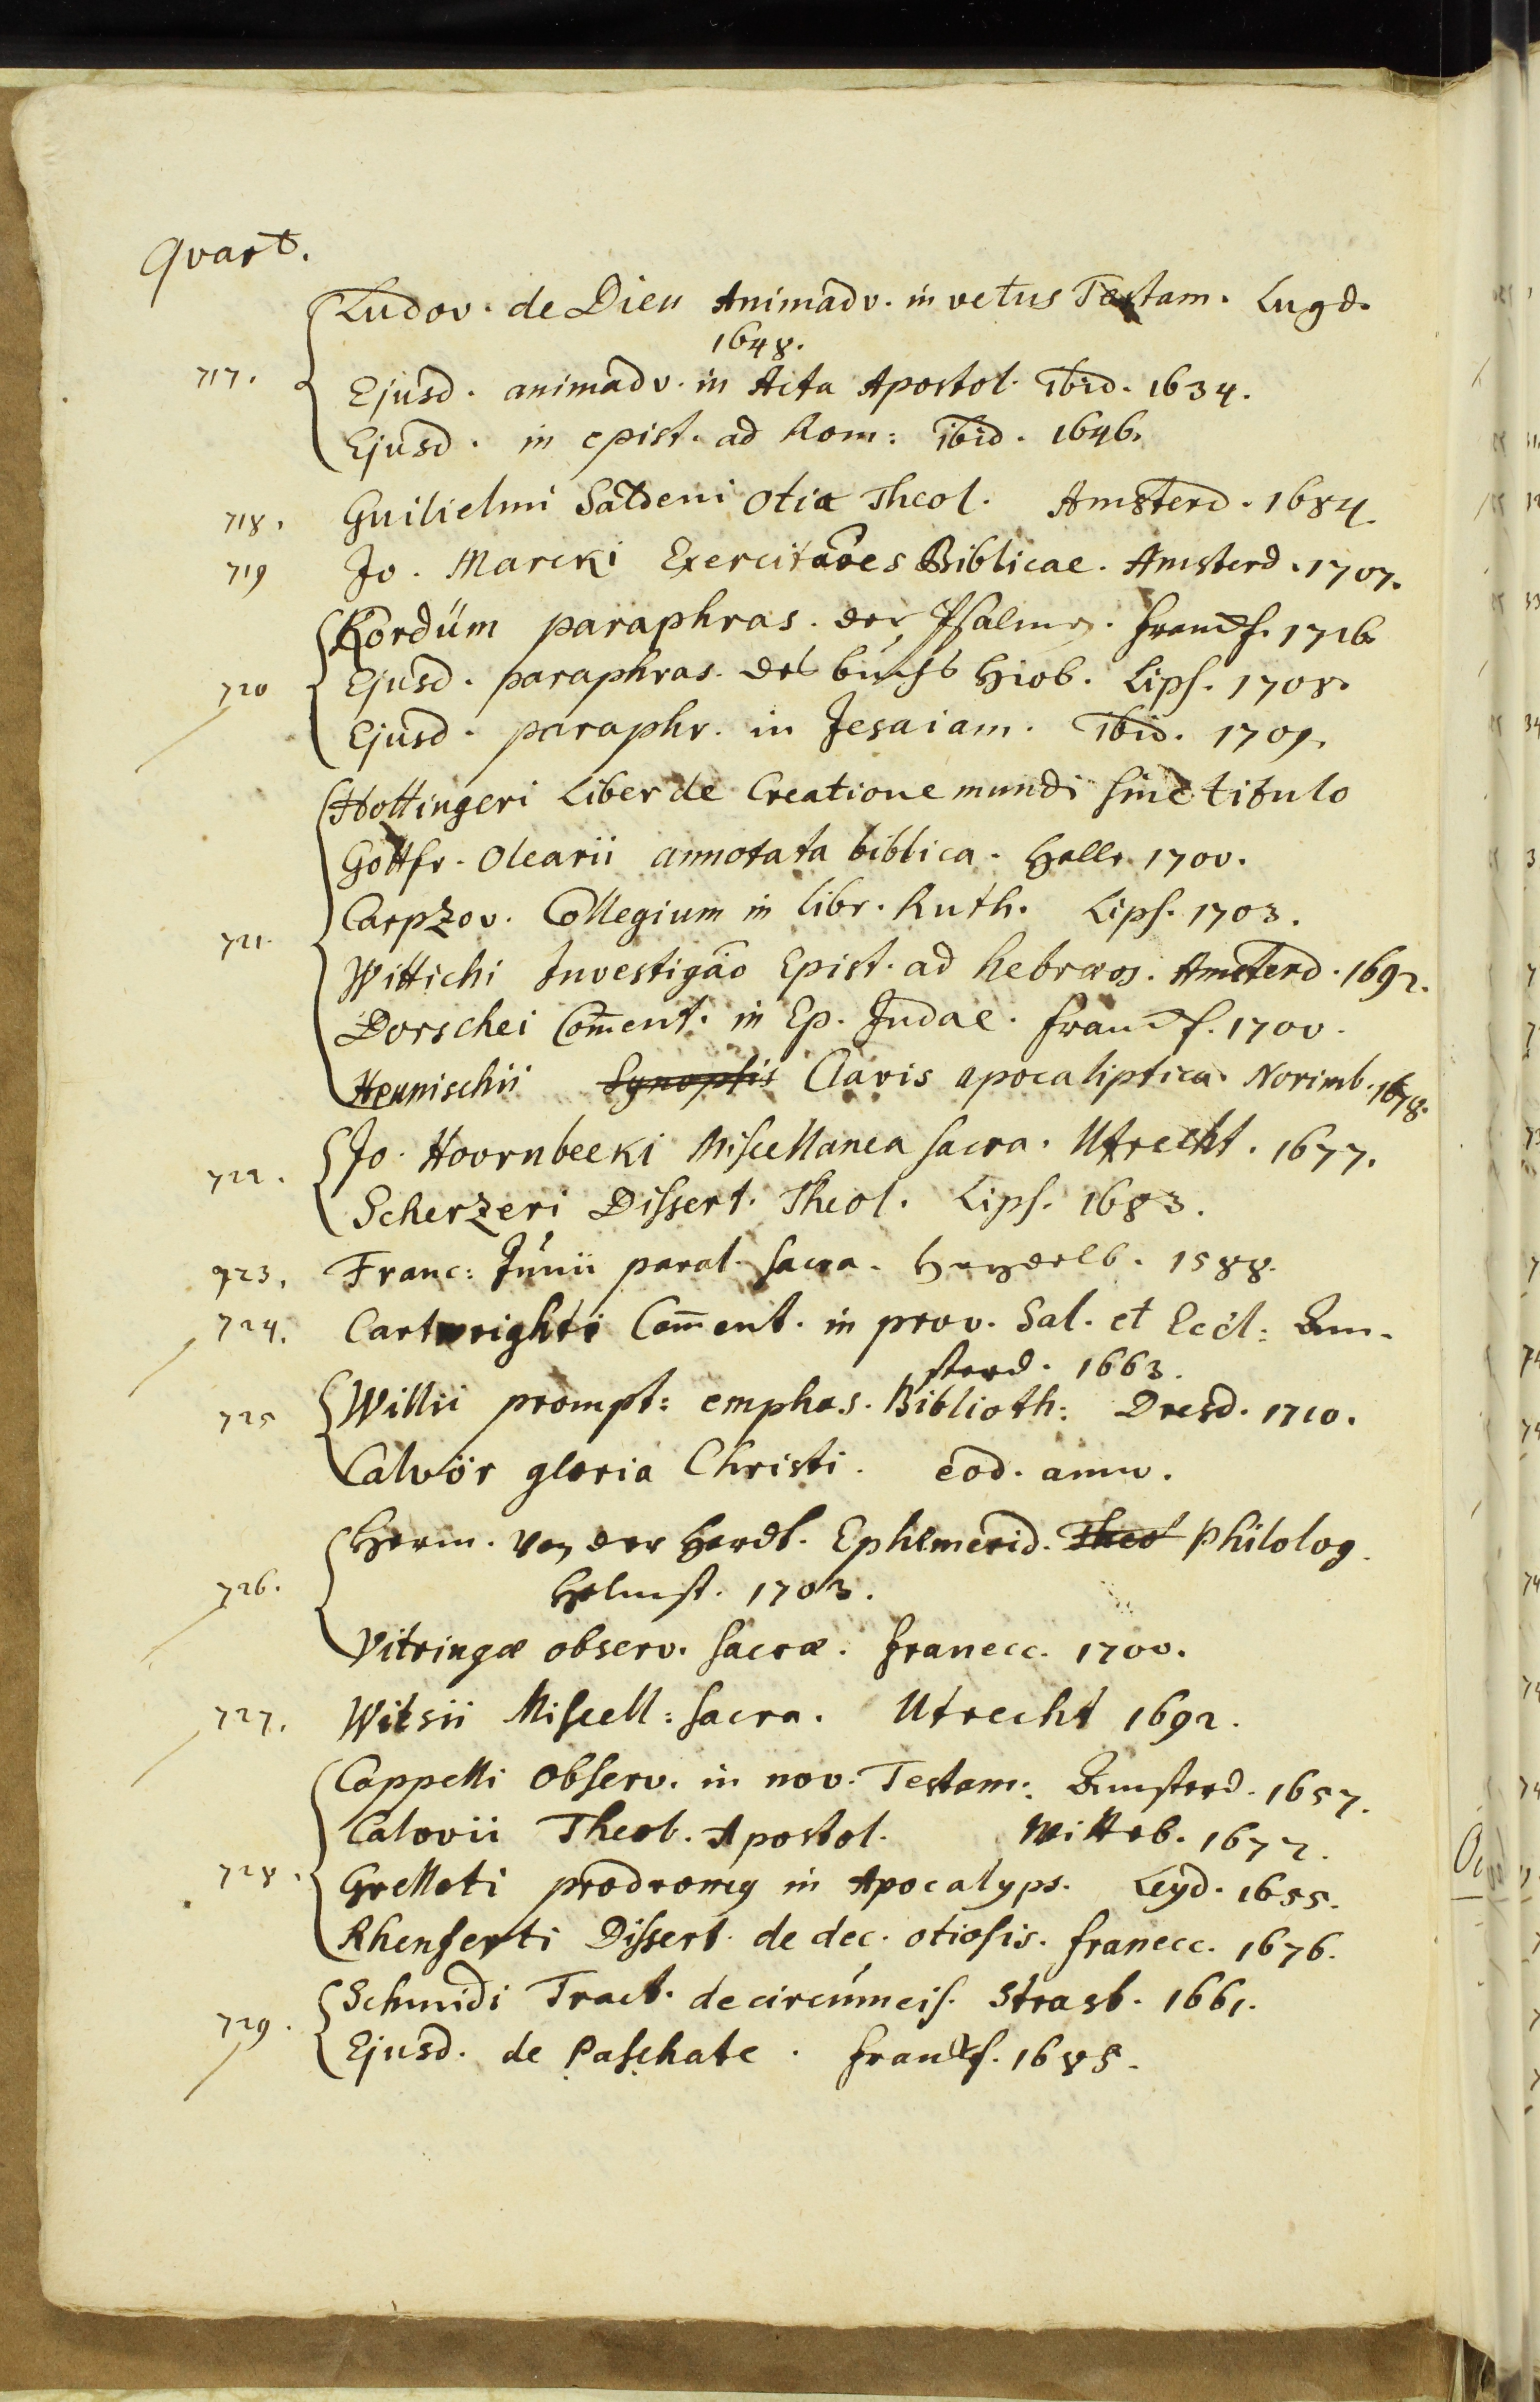 Qvart.
Ludov. de Dieu Animadv. in vetus Testam. Lugd.
1648.
717. Ejusd. animadv. in Acta Apostol. ibid. 1634.
Ejusd. in epist. ad Rom: ibid. 1646.
718. Guilielmi Saldeni Otia Theol. Amsterd. 1684.
719 Jo. Marcki Exercitaões Biblicae. Amsterd. 1707.
Kordüm paraphras. der Psalmen. Franckf. 1716.
720 Ejusd. paraphras. des buchs Hiob. Lips. 1708.
Ejusd. paraphr. in Jesaiam. ibid. 1709.
Hottingeri Liber de Creatione mundi sine titulo
Gottfr. Olearii annotata biblica. Halle 1700.
721. Carpzov. Collegium in libr. Ruth. Lips. 1703.
Wittichi Investigaõ Epist. ad hebraeos. Amsterd. 1692.
Dorschei Com̄ent. in Ep. Judae. Franckf. 1700.
Hennischii Synopsis Clavis apocaliptica. Norimb. 1678.
722. Jo. Hoornbeeki Miscellanea sacra. Utrecht. 1677.
Scherzeri Dissert. Theol. Lips. 1683.
723. Franc: Junii paral. sacra. Heydelb. 1588.
724. Cartwrighti Com̄ent. in prov. Sal. et Eccl: Am-
sterd. 1663.
725 Willii prompt: emphas. Biblioth: Dresd. 1710.
Calvör gloria Christi. eod. anno.
Herm. von der Hardt. Ephemerid. Theol Philolog.
726. Helmst. 1703.
Vitringae observ. sacrae. Franecc. 1700.
727. Witsii Miscell: sacra. Utrecht 1692.
Cappelli Observ. in nov. Testam: Amsterd. 1657.
Calovii Theol. Apostol. Witteb. 1677.
728. Grelloti prodromus in Apocalyps. Leyd. 1655.
Rhenferti Dissert. de dec. otiosis. Franecc. 1676.
Schmidi Tract. de circumcis. Strasb. 1661.
729. Ejusd. de Paschate. Franckf. 1685.